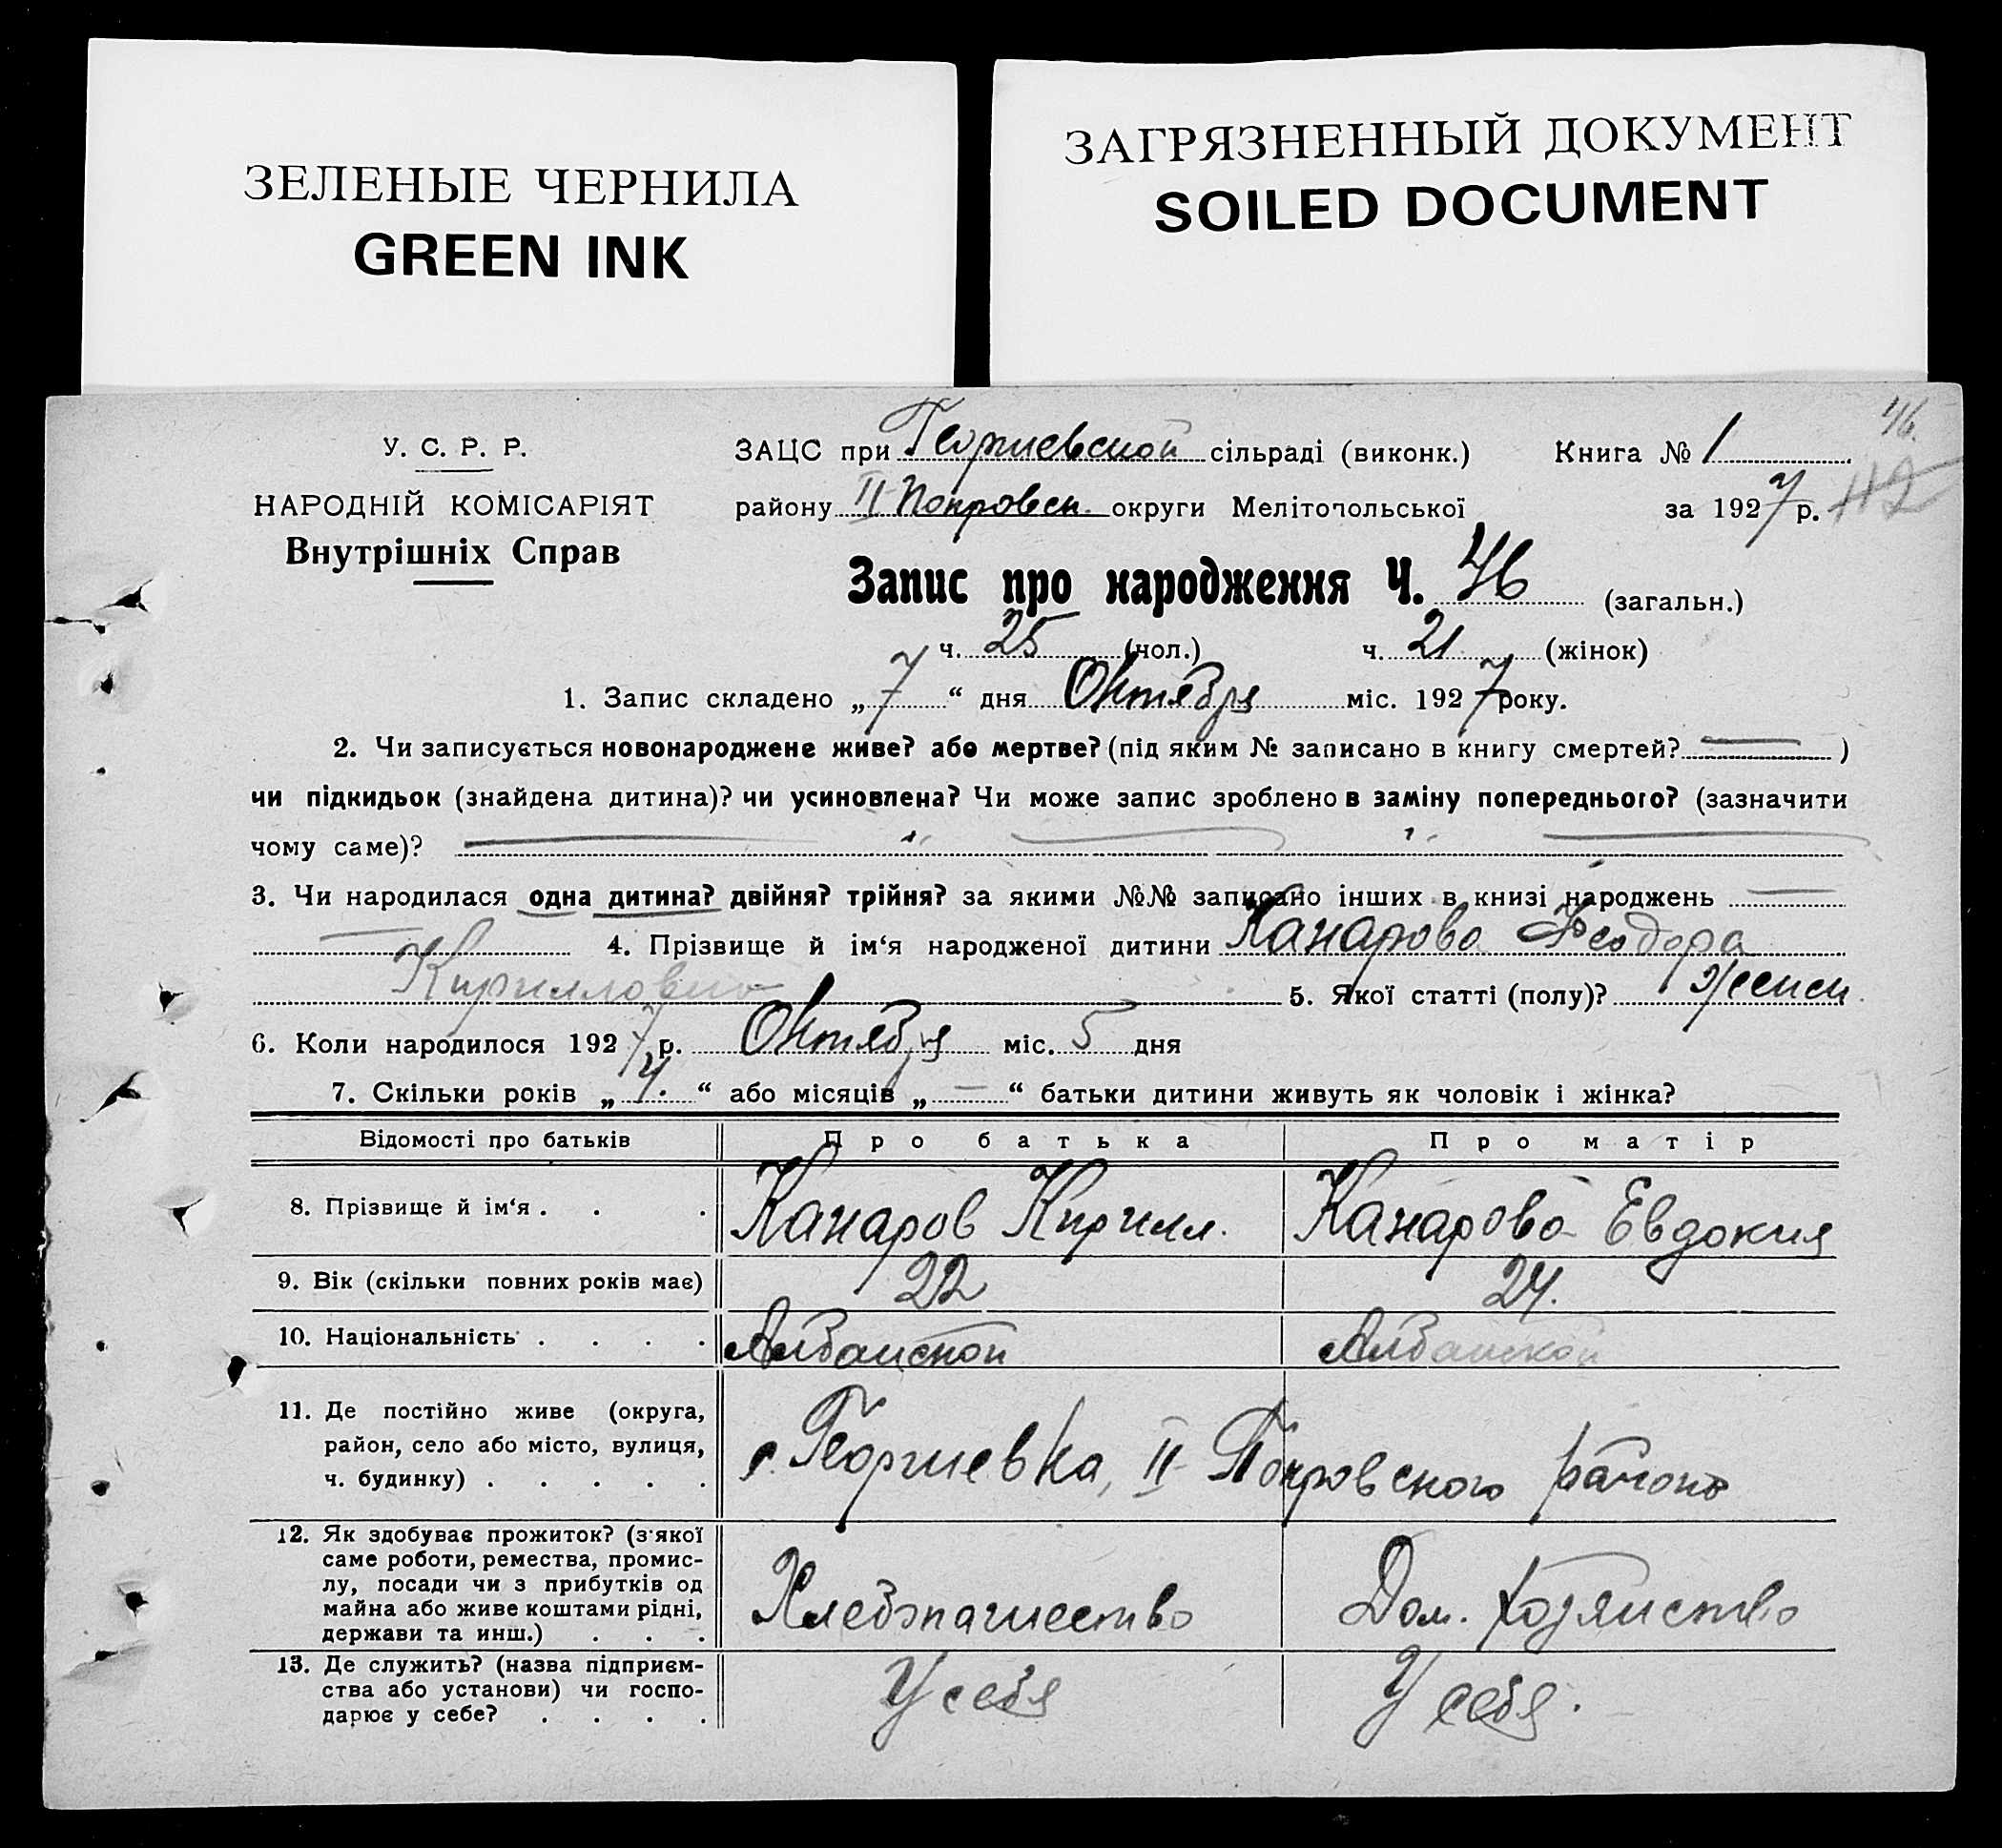 ЗЕЛЕНЫЕ ЧЕРНИЛА
GREEN INK
ЗАГРЯЗНЕННЫЙ ДОКУМЕНТ
SOILED DOCUMENT
46.
112
У. С. Р. Р.
НАРОДНІЙ КОМІСАРІЯТ
Внутрішніх Справ
ЗАЦС при Георгиевской сільраді (виконк.) Книга № 1
району II Покровск. округи Мелітопольської за 1927 р.
Запис про народження Ч. 46 (загальн.)
ч. 25 (чол.) ч. 21 (жінок)
1. Запис складено „7“ дня Октября міс. 1927 року.
2. Чи записується новонароджене живе? або мертве? (під яким № записано в книгу смертей? — )
чи підкидьок (знайдена дитина)? чи усиновлена? Чи може запис зроблено в заміну попереднього? (зазначити
чому саме)? — „ — „ —
3. Чи народилася одна дитина? двійня? трійня? за якими №№ записано інших в книзі народжень —
— 4. Прізвище й ім‘я народженої дитини Канарова Феодора
Кирилловна 5. Якої статті (полу)? Женск.
6. Коли народилося 1927 р. Октября міс. 5 дня
7. Скільки років „4.“ або місяців „—“ батьки дитини живуть як чоловік і жінка?
Відомості про батьків Про батька Про матір
8. Прізвище й ім‘я . . . Канаров Кирилл. Канарова Евдокия
9. Вік (скільки повних років має) 22 24.
10. Національність . . . . Албанской Албанской
11. Де постійно живе (округа,
район, село або місто, вулиця,
ч. будинку) . . . . .
с. Георгиевка, II Покровского района
12. Як здобуває прожиток? (з якої
саме роботи, ремества, промис-
лу, посади чи з прибутків од
майна або живе коштами рідні,
держави та инш.) . . .
Хлебопашество Дом. хозяйство
13. Де служить? (назва підприєм-
ства або установи) чи госпо-
дарює у себе? . . . .
У себя У себя.